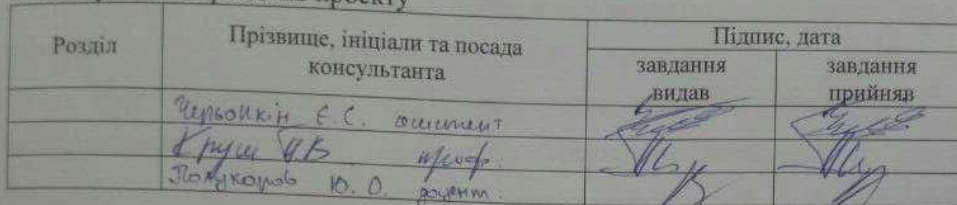 проєкту
Розділ Прізвище, ініціали та посада консультанта Підпис, дата
завдання видав завдання прийняв
Червонкін Є.С. асистент
Круш П.В. проф.
Полукаров Ю.О. доцент.